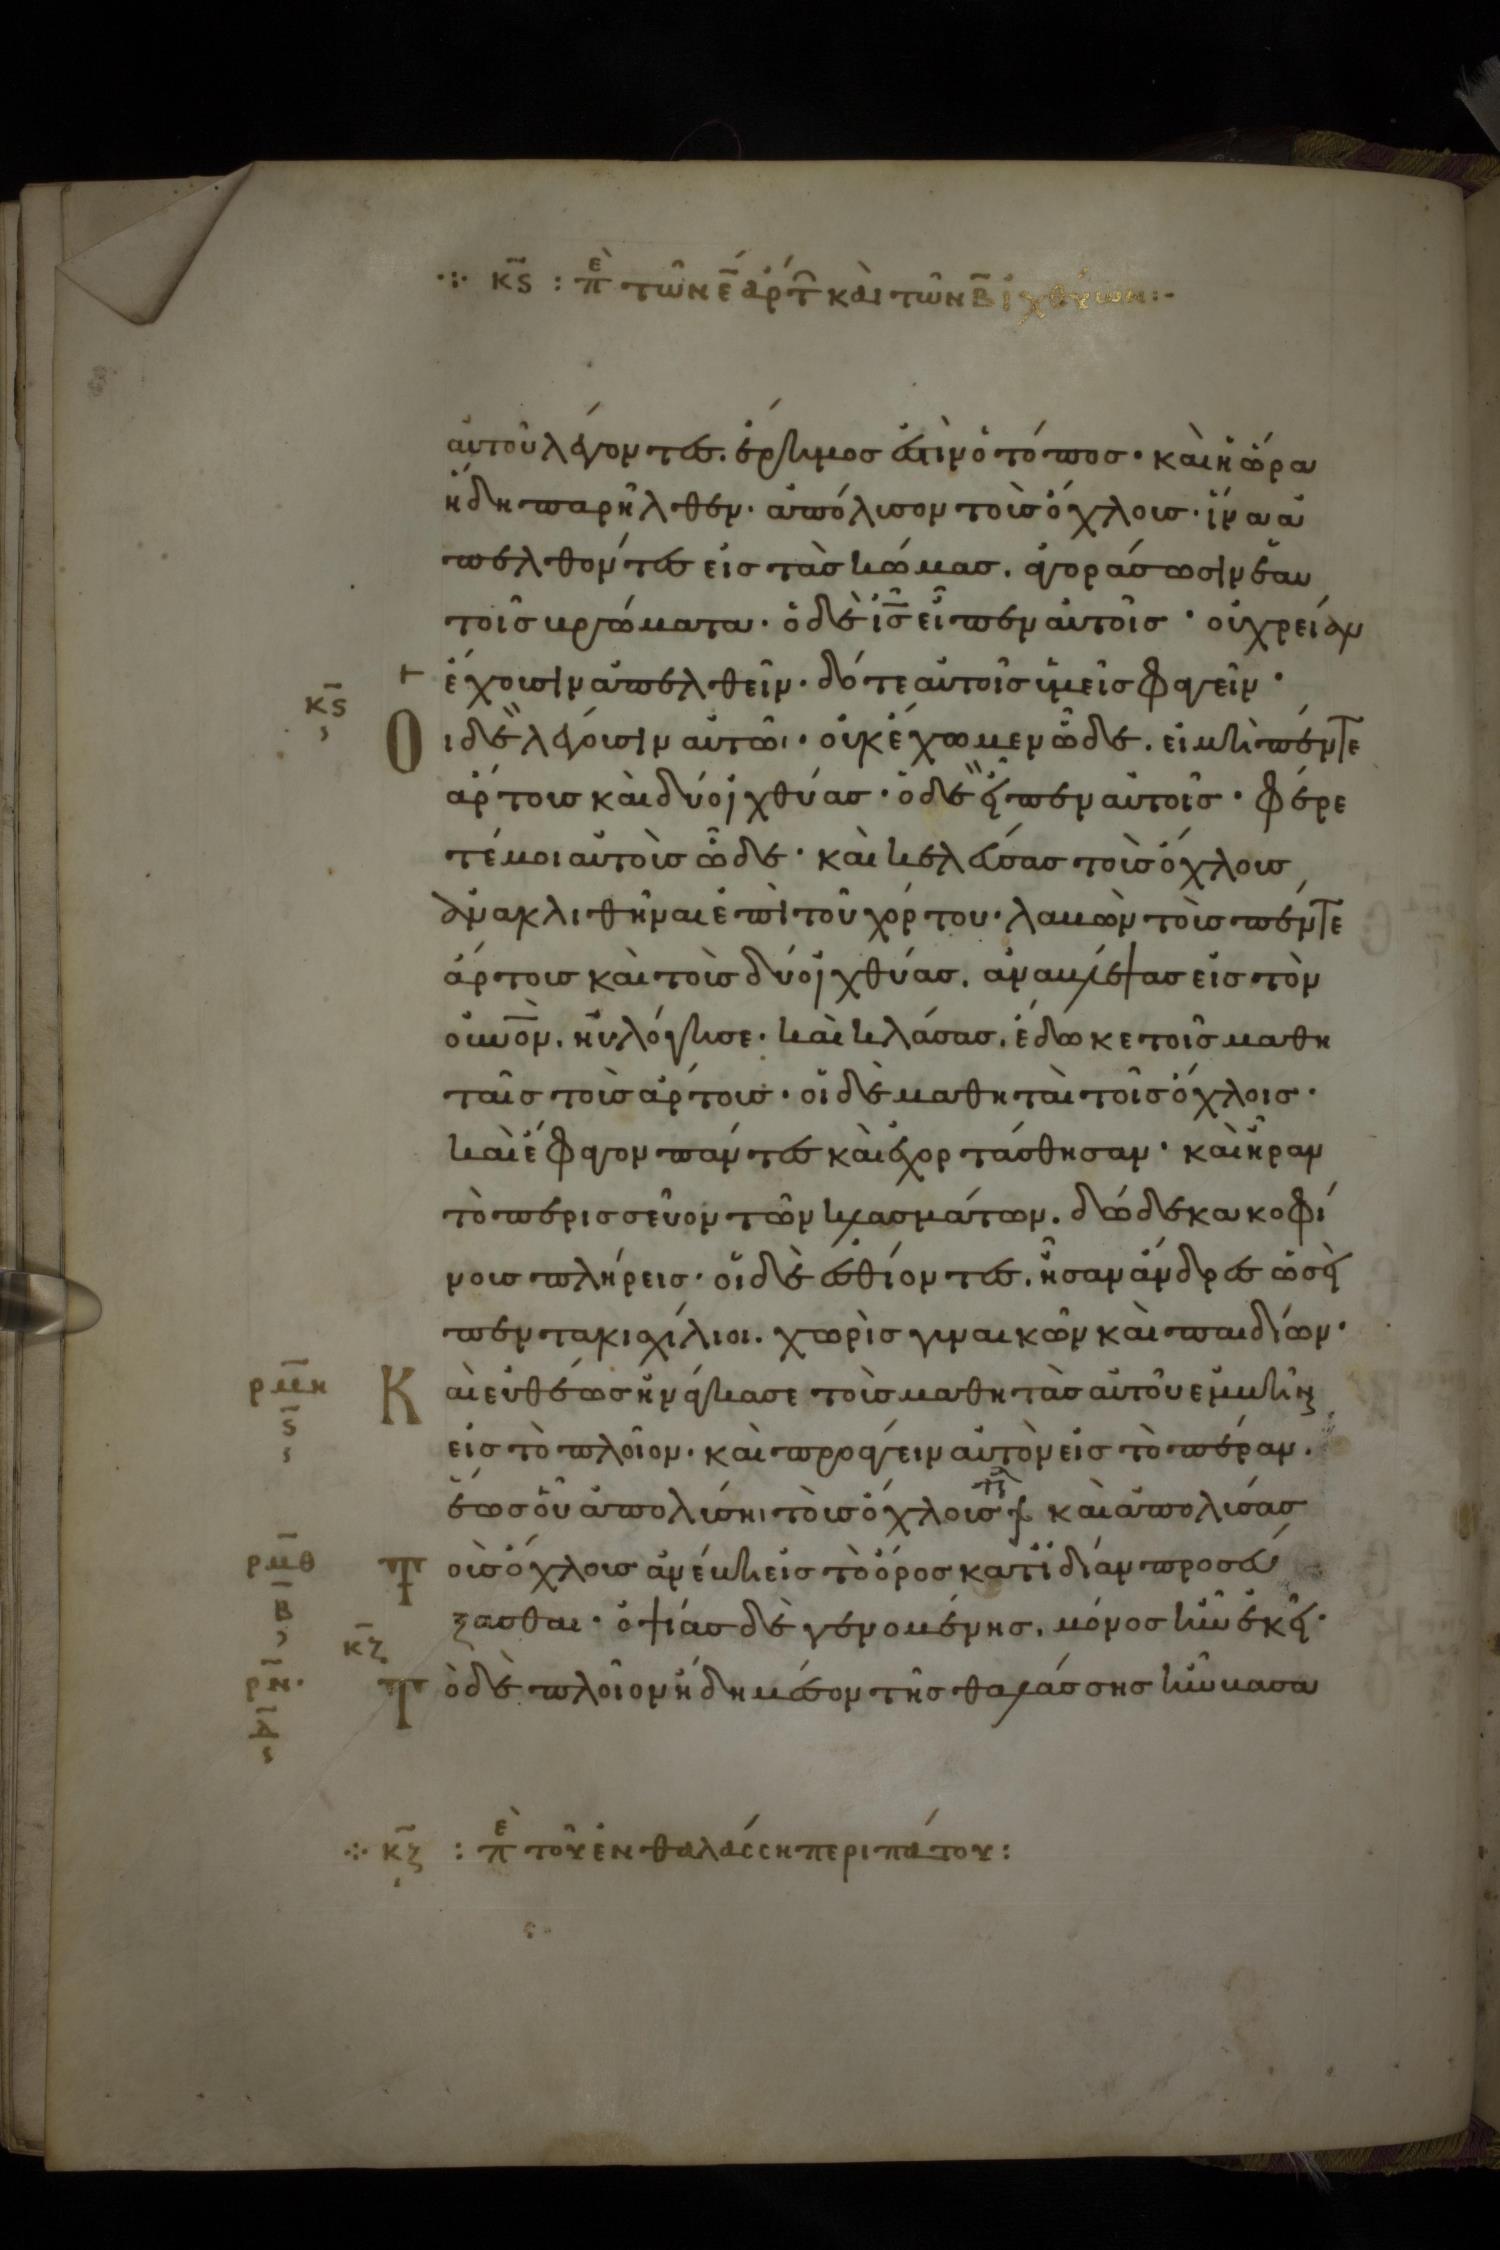 κϛ : πε τῶν ε ἄρτ καὶ τῶν β ἰχθύων :
αὐτοῦ λέγοντες. ἔρημος ἐστὶν ὁ τόπος · καὶ ἡ ὥρα
ἤδη παρῆλθεν · ἀπόλυσον τοὺς ὄχλους · ἵνα ἀ
πελθόντες εἰς τὰς κώμας . ἀγοράσωσιν ἑαυ
τοῖς βρώματα · ὁ δὲ ις εἶπεν αὐτοῖς · οὐ χρείαν
ἔχουσιν ἀπελθεῖν · δότε αὐτοῖς ὑμεῖς φαγεῖν ·
κϛ
Οἱ δὲ λέγουσιν αὐτῶ · οὐκ ἔχωμεν ὧδε . εἰ μὴ πέντε
ἄρτους καὶ δύο ἰχθύας · ὁ δὲ εἶπεν αὐτοῖς · φέρε
τέ μοι αὐτοὺς ὧδε · καὶ κελεύσας τοὺς ὄχλους
ἀνακλιθῆναι ἐπὶ τοῦ χόρτου · λαβὼν τοὺς πέντε
ἄρτους καὶ τοὺς δύο ἰχθύας . ἀναβλέψας εἰς τὸν
οὐνὸν . ηὐλόγησε · καὶ κλάσας . ἔδωκε τοῖς μαθη
ταῖς τοὺς ἄρτους · οἱ δὲ μαθηταὶ τοῖς ὄχλοις ·
καὶ ἔφαγον πάντες καὶ ἐχορτάσθησαν · καὶ ἦραν
τὸ περισσεῦον τῶν κλασμάτων . δώδεκα κοφί
νους πλήρεις · οἱ δὲ ἐσθίοντες . ἦσαν ἄνδρες ὡσεὶ
πεντακισχίλιοι . χωρὶς γυναικῶν καὶ παιδίων ·
ρμη ϛ
Καὶ εὐθέως ἠνάγκασε τοὺς μαθητὰς αὐτοῦ ἐμβῆναι
εἰς τὸ πλοῖον · καὶ προάγειν αὐτὸν εἰς τὸ πέραν .
ἕως οὗ ἀπολύση τοὺς ὄχλους καὶ ἀπολύσας
ρμθ β
Τοὺς ὄχλους ἀνέβη εἰς τὸ ὄρος κατ ἰδίαν προσεύ
ξασθαι · ὀψίας δὲ γενομένης . μόνος ἦν ἐκεῖ ·
κζ
ρν δ
Τὸ δὲ πλοῖον ἤδη μέσον τῆς θαλάσσης ἦν βασα
κζ : πε τοῦ ἐν θαλάσση περιπάτου :